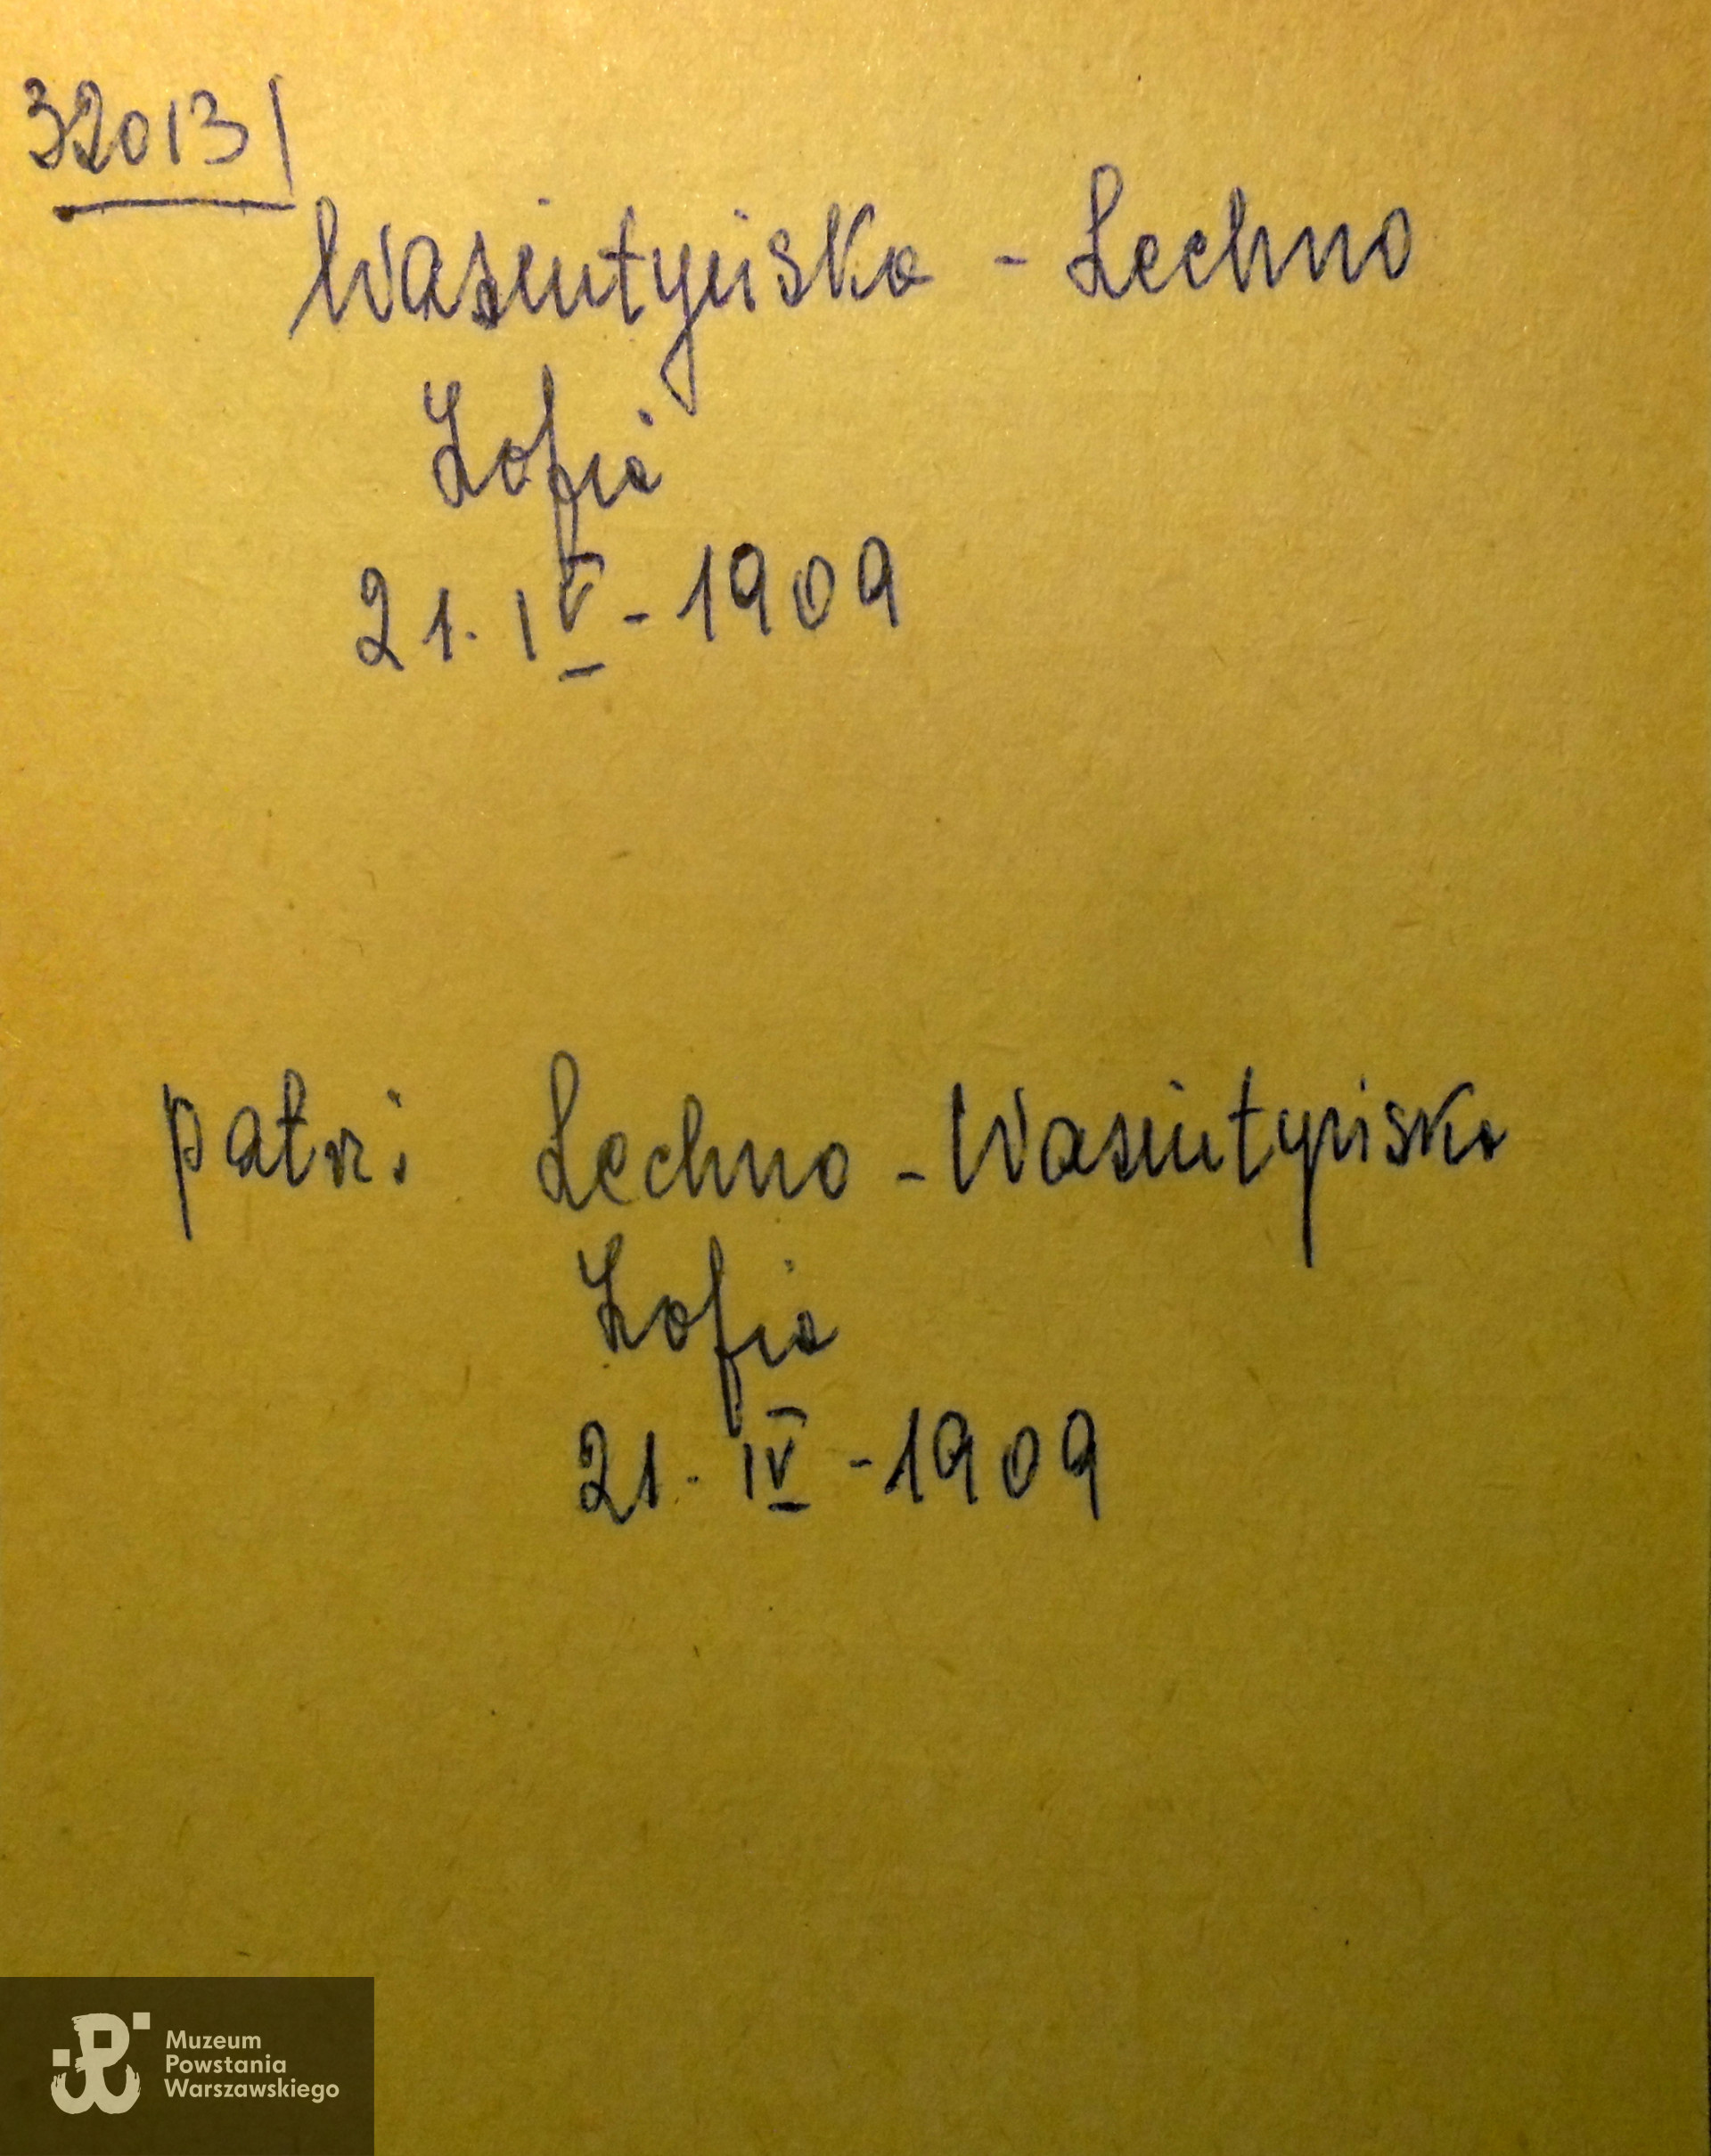 32013
Wasiutyńska - Lechno
Zofia
21. IV - 1909
patrz: Lechno - Wasiutyńska
Zofia
21. IV - 1909
Muzeum
Powstania
Warszawskiego